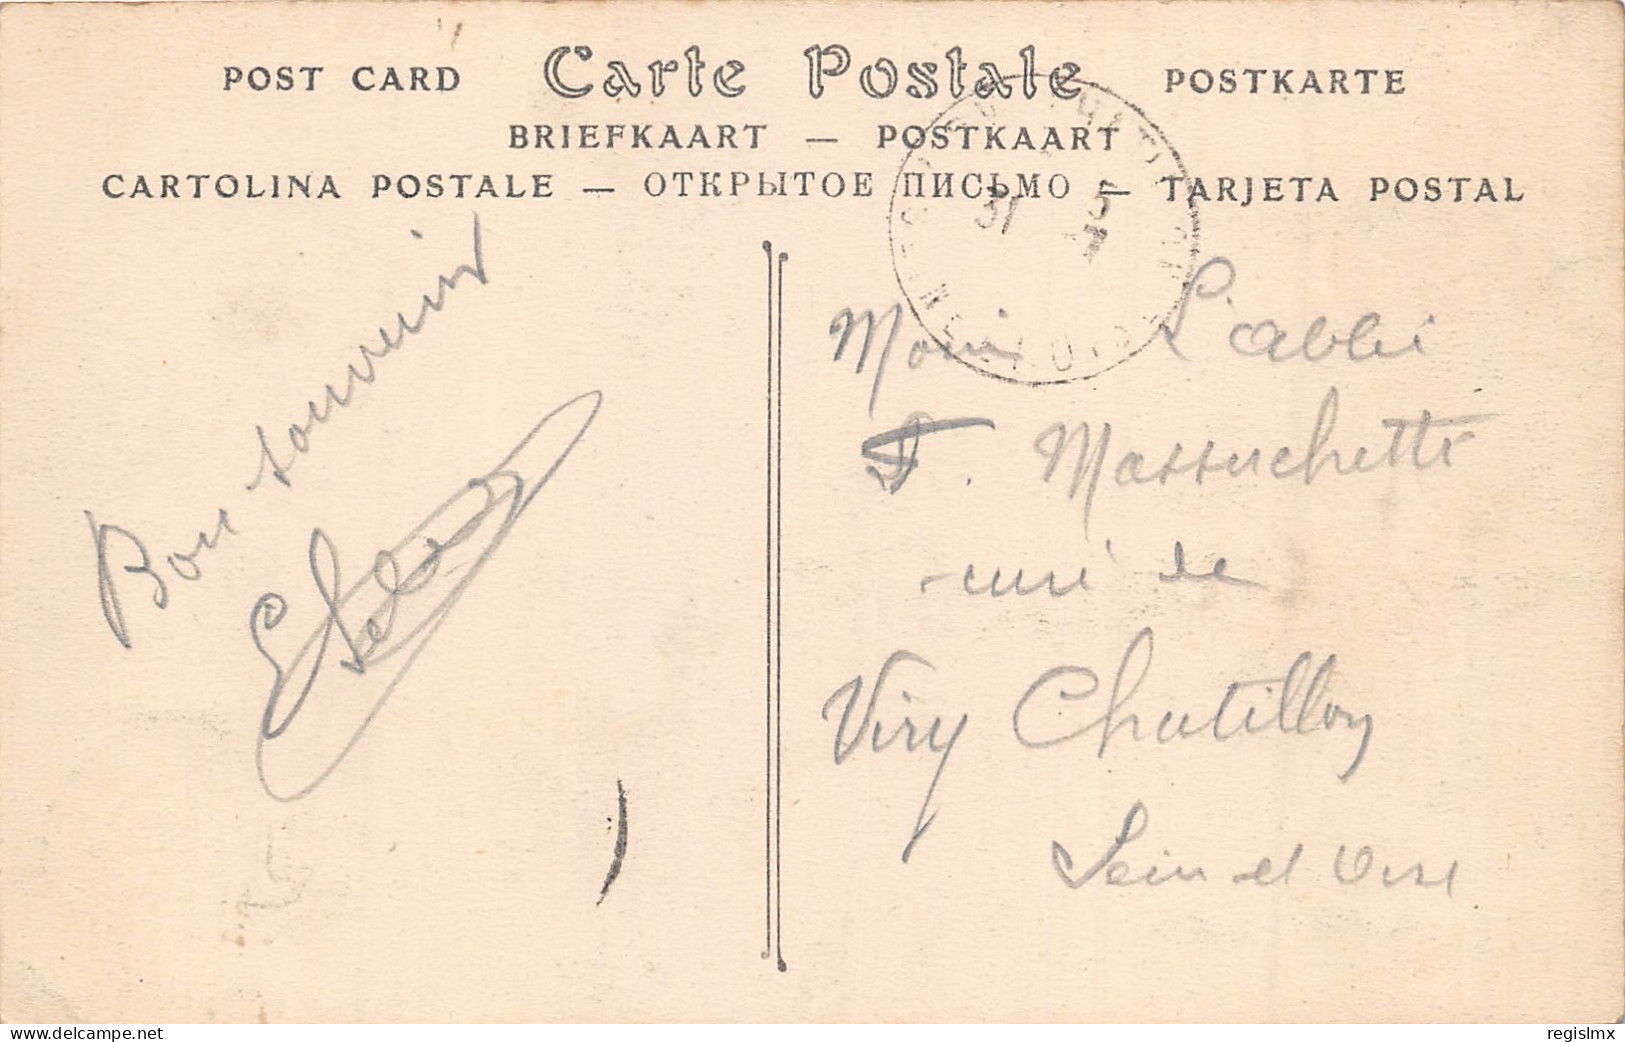 POST CARD Carte Postale POSTKARTE
BRIEFKAART — POSTKAART
CARTOLINA POSTALE — ОТКРЫТОЕ ПИСЬМО — TARJETA POSTAL
31 5
7
Bon souvenir
L'abbé
Massuchetti
curé de
Viry Chatillon
Sein et Oise
delcampe.net
regislmx